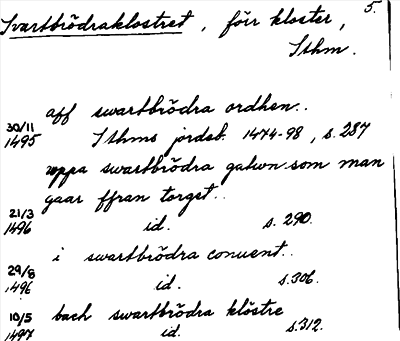 Svartbrödraklostret, förr kloster, 5.
Sthm.
aff swartbrödra ordhen..
30/11 1495 Sthms jordeb. 1474-98, s. 287
vppa swartbrödra gatwn som man
gaar ffran torget..
21/3 1496 id. s. 290.
i swartbrödra conuent..
29/8 1496 id. s. 306.
bach swartbrödra klöstre
10/5 1497 id. s. 312.